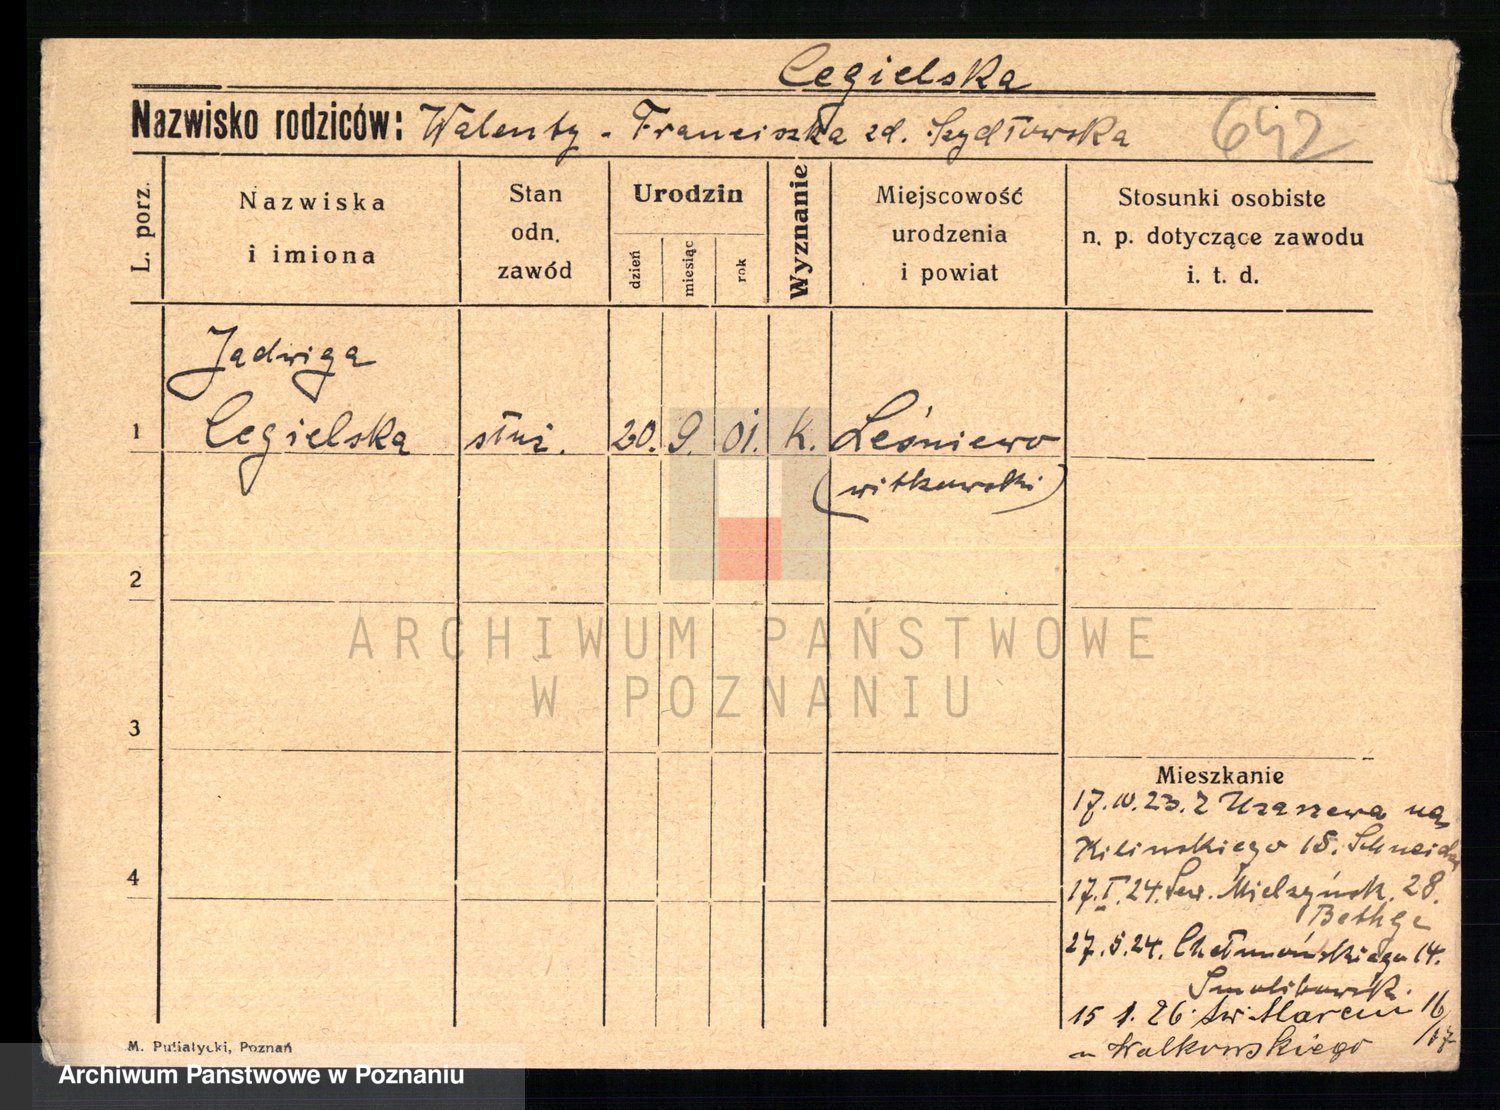 Cegielska
Nazwisko rodziców: Walenty - Franciszka zd. Szydłowska 642
L. porz.
Nazwiska
i imiona
Stan
odn.
zawód
Urodzin
dzień
miesiąc
rok
Wyznanie
Miejscowość
urodzenia
i powiat
Stosunki osobiste
n. p. dotyczące zawodu
i. t. d.
Jadwiga
1 Cegielska służ. 20. 9. 01. k. Leśniewo
(witkowski)
2
3
4
Mieszkanie
17.IV.23. z na
Kilinskiego 15.
17.I.24. Sew. Mielżyńsk. 28.
Bethge
27.5.24. Chełmońskiego 14.
15 1. 26. św. Marcin 16/17
u Walkowskiego
M. Putiatycki, Poznań
ARCHIWUM PAŃSTWOWE
W POZNANIU
Archiwum Państwowe w Poznaniu